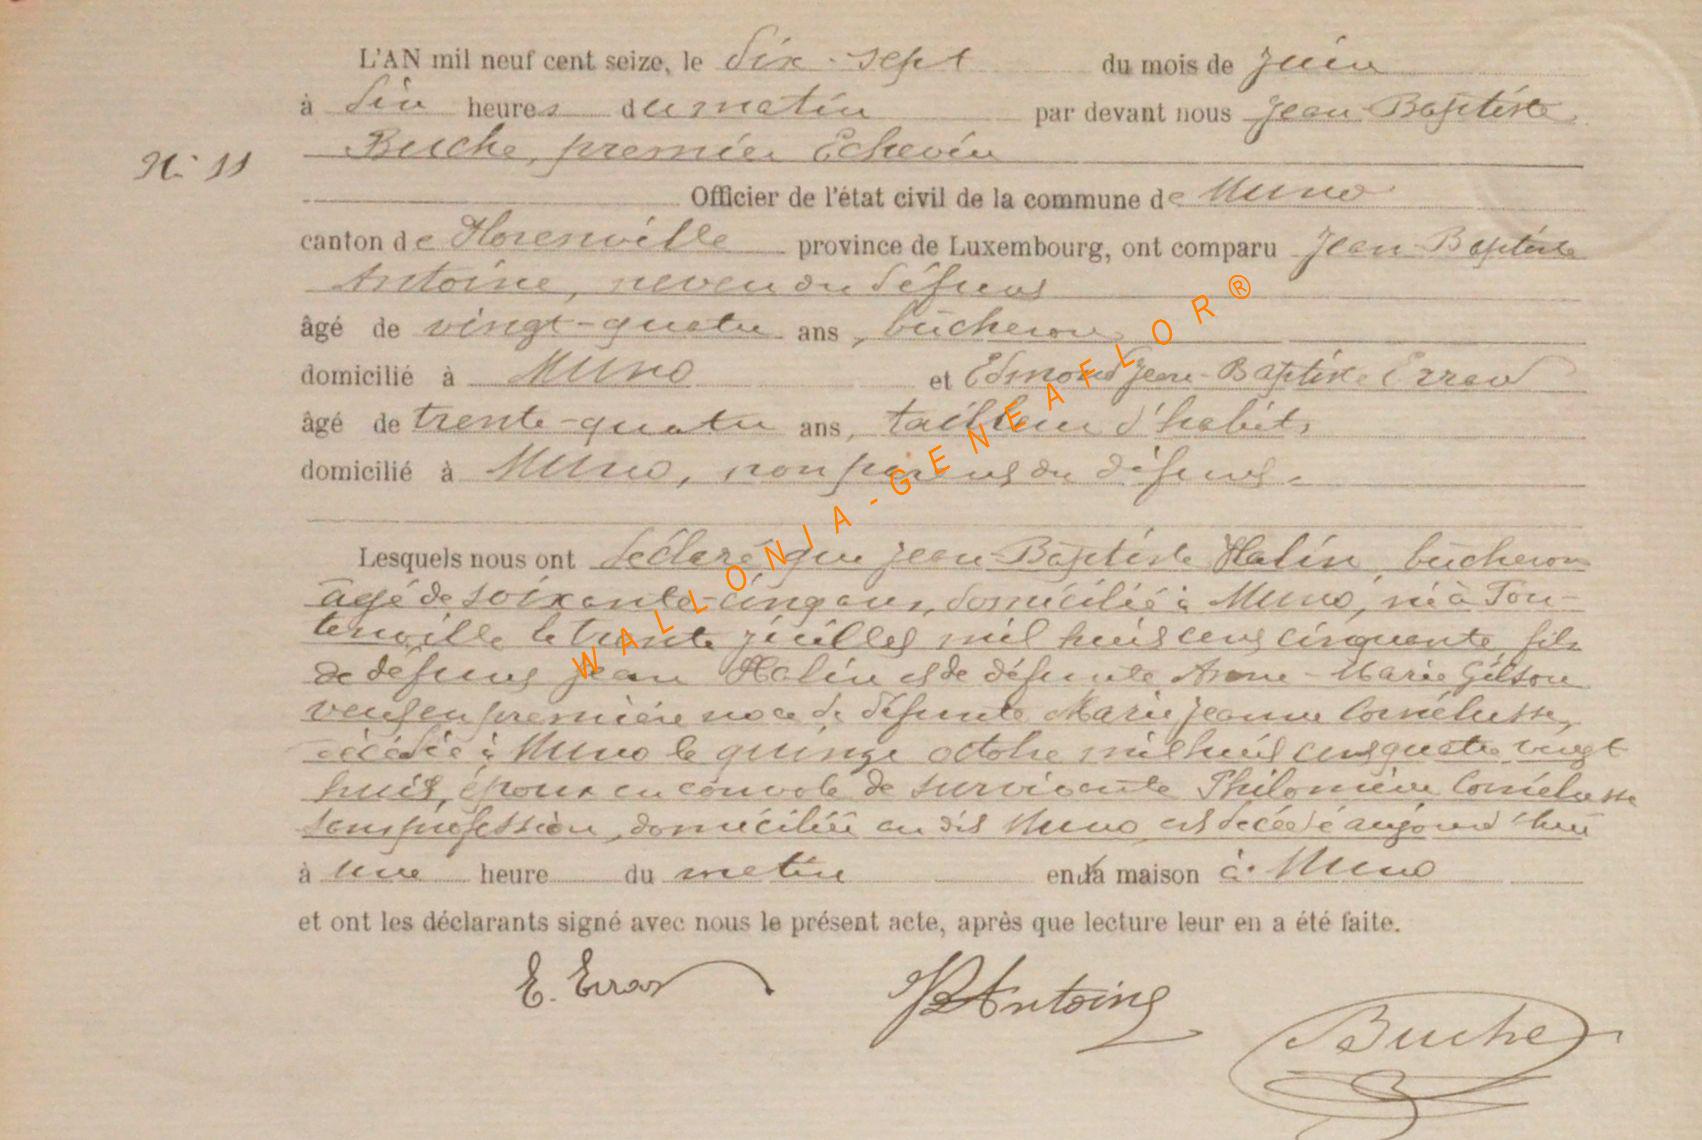 L'AN mil neuf cent seize, le dix-sept du mois de juin
à dix heures du matin par devant nous Jean-Baptiste
Buche, premier Echevin
N° 11
Officier de l'état civil de la commune de Muno
canton de Florenville province de Luxembourg, ont comparu Jean-Baptiste
Antoine, neveu du défunt
âgé de vingt-quatre ans, bûcheron
domicilié à Muno et Edmond Jean-Baptiste
âgé de trente-quatre ans, tailleur d'habits
domicilié à Muno, non parent du défunt.
Lesquels nous ont déclaré que Jean-Baptiste Halin, bûcheron
âgé de soixante-cinq ans, domicilié à Muno, né à Fon-
tenoille le trente juillet mil huit cent cinquante, fils
de défunt Jean Halin et de défunte Anne-Marie Gilson
veuf en première noce de défunte Marie Jeanne Cornélusse,
décédée à Muno le quinze octobre mil huit cent quatre vingt
huit, époux en convole de survivante Philomène Cornélusse
sans profession, domiciliée au dit Muno, est décédé aujourd'hui
à une heure du matin en la maison à Muno
et ont les déclarants signé avec nous le présent acte, après que lecture leur en a été faite.
E. JBAntoine
Buche
WALLONIA-GENEAFLOR®